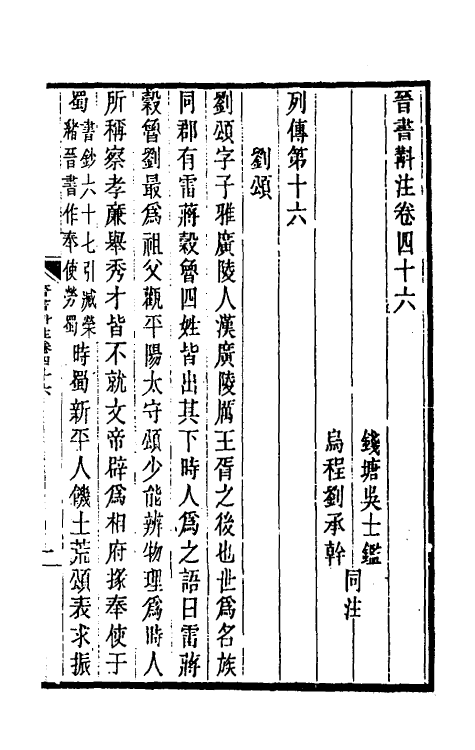 晉書斠注卷四十六
錢塘吳士鑑
烏程劉承幹
同注
列傳第十六
劉頌
劉頌字子雅廣陵人漢廣陵厲王胥之後也世爲名族
同郡有雷蔣穀魯四姓皆出其下時人爲之語曰雷蔣
穀魯劉最爲祖父觀平陽太守頌少能辨物理爲時人
所稱察孝廉舉秀才皆不就文帝辟爲相府掾奉使于
蜀
書鈔六十七引臧榮
緒晉書作奉使勞蜀
時蜀新平人饑土荒頌表求振
晉書斠注卷四十六
一